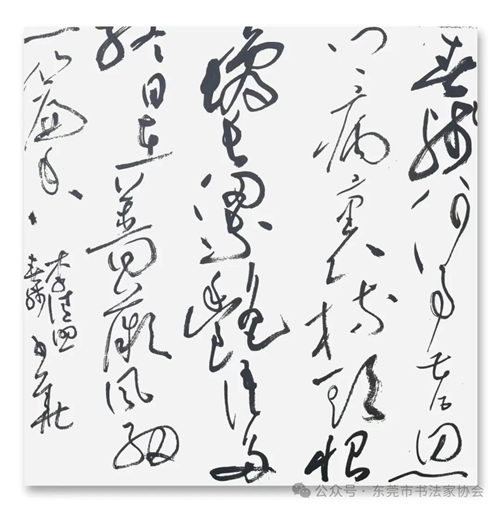 春殘何事苦思
鄉病裏梳頭恨
長梁燕語多
終日在薔薇風細
一簾香
李清照
春殘
公众号 · 东莞市书法家协会